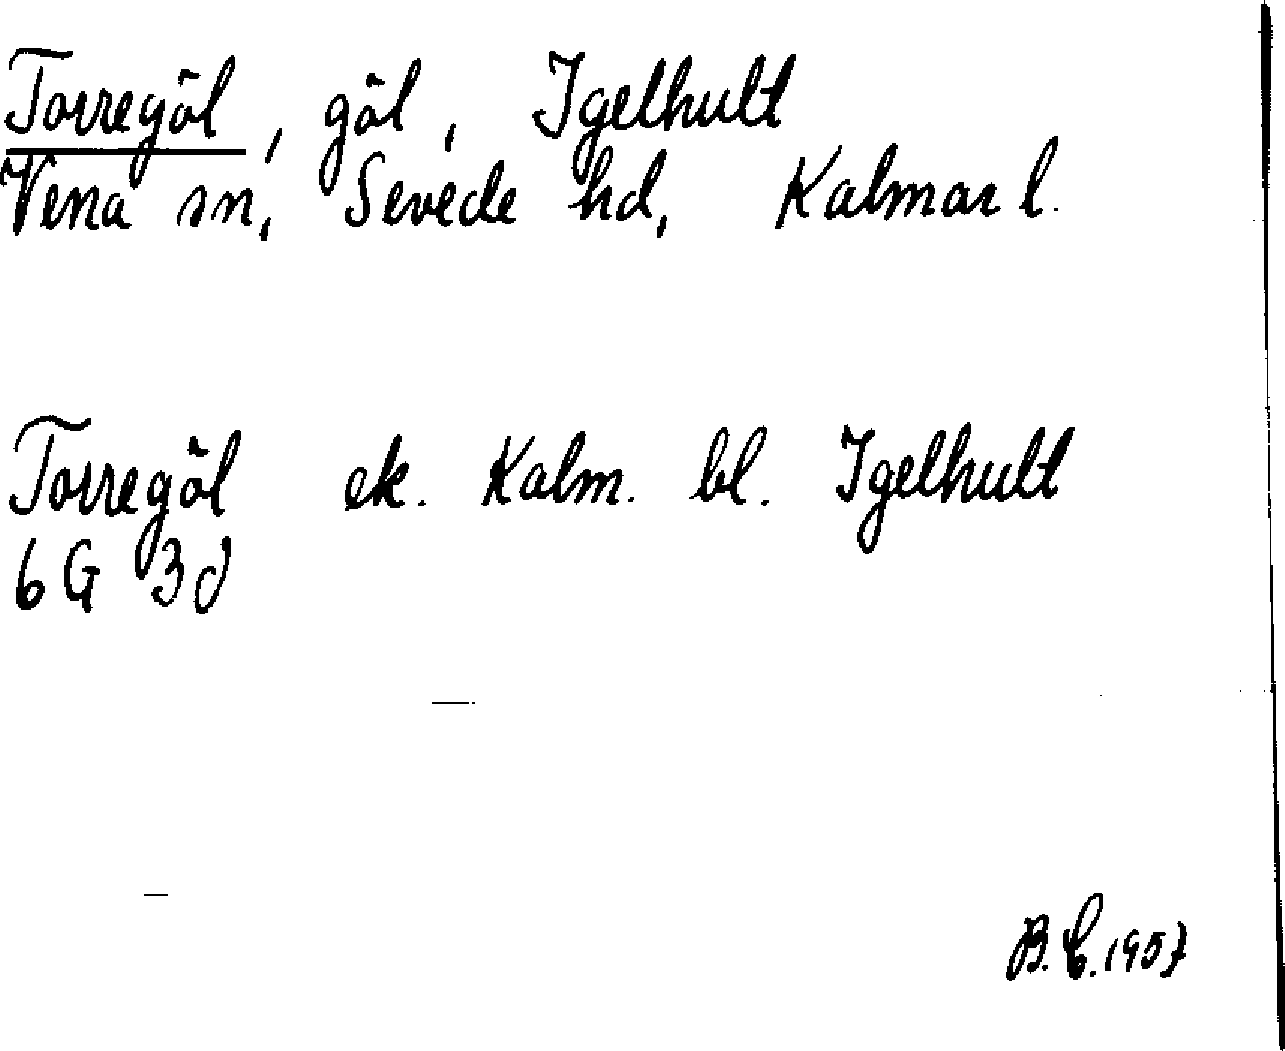 Torregöl, göl, Igelhult
Vena sn, Sevede hd, Kalmar l.
Torregöl ek. Kalm. bl. Igelhult
6G 3d
B. C. 1957